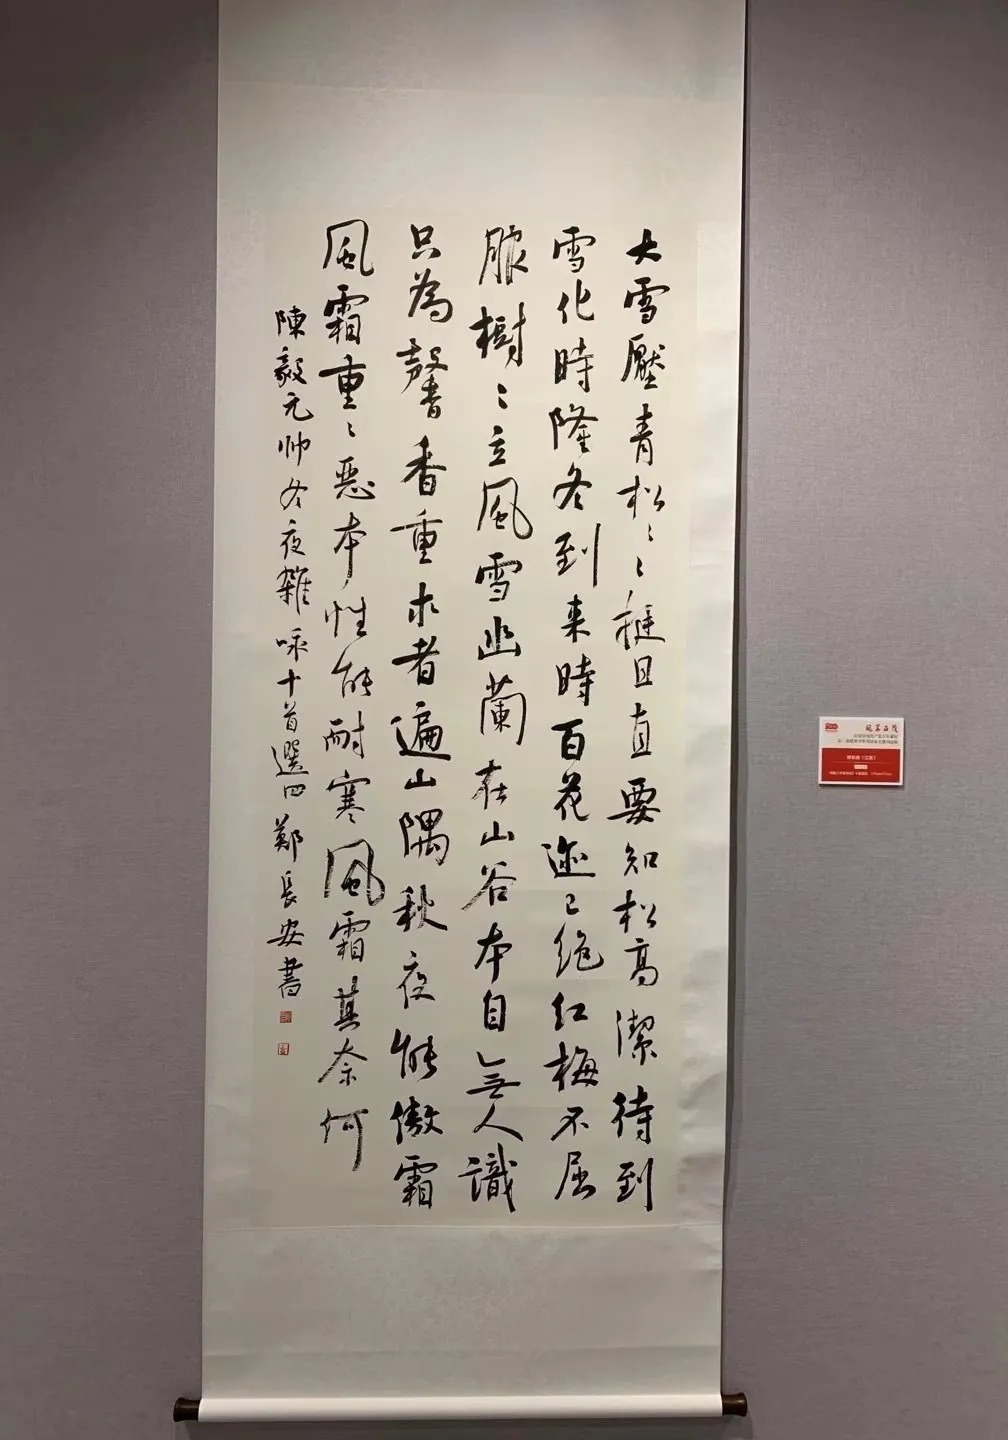 大雪壓青松〻〻挺且直要知松高潔待到
雪化時隆冬到来時百花迹已絕紅梅不屈
服樹〻立風雪幽蘭在山谷本自無人識
只為馨香重求者遍山隅秋夜能傲霜
風霜重〻惡本性能耐寒風霜其奈何
陳毅元帥冬夜雜咏十首選四鄭長安書